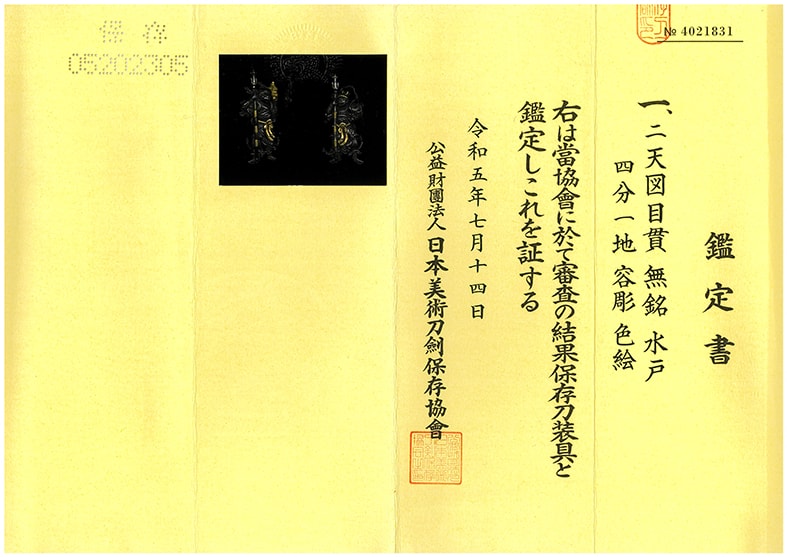 № 4021831
鑑定書
一、二天図目貫 無銘 水戸
四分一地 容彫 色絵
右は當協會に於て審査の結果保存刀装具と
鑑定しこれを証する
令和五年七月十四日
公益財團法人 日本美術刀劍保存協會
保存
05202305